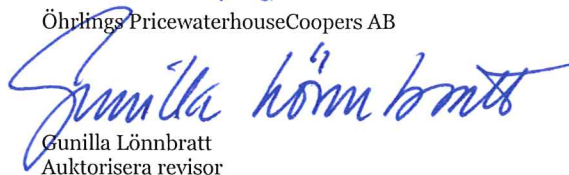 Öhrlings PricewaterhouseCoopers AB
Gunilla Lönnbratt
Gunilla Lönnbratt
Auktorisera revisor